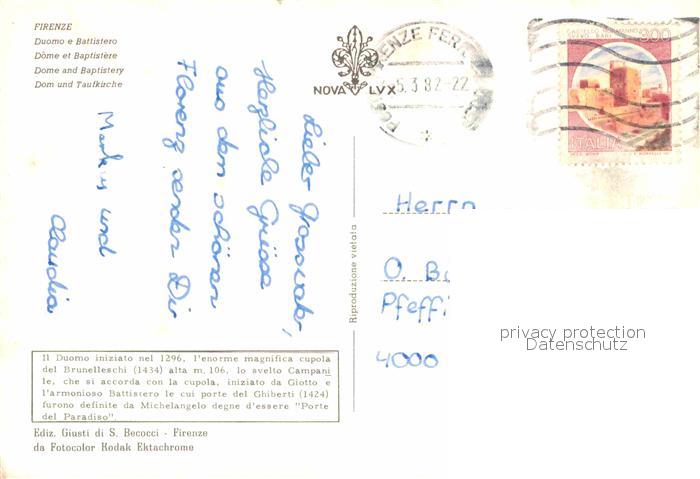 FIRENZE
Duomo e Battistero
Dôme et Baptistère
Dome and Baptistery
Dom und Taufkirche
NOVA LVX
5.3.82-22
CASTELLO NORMANNO
SVEVO BARI
300
ITALIA
Lieber Grossvater,
Herzliche Grüsse
aus dem schönen
Florenz senden Dir
Markus und
Claudia
Riproduzione vietata
Herrn
O. B.
Pfeffi
4000
privacy protection
Datenschutz
Il Duomo iniziato nel 1296, l'enorme magnifica cupola
del Brunelleschi (1434) alta m. 106, lo svelto Campani
le, che si accorda con la cupola, iniziato da Giotto e
l'armonioso Battistero le cui porte del Ghiberti (1424)
furono definite da Michelangelo degne d'essere "Porte
del Paradiso".
Ediz. Giusti di S. Becocci - Firenze
da Fotocolor Kodak Ektachrome